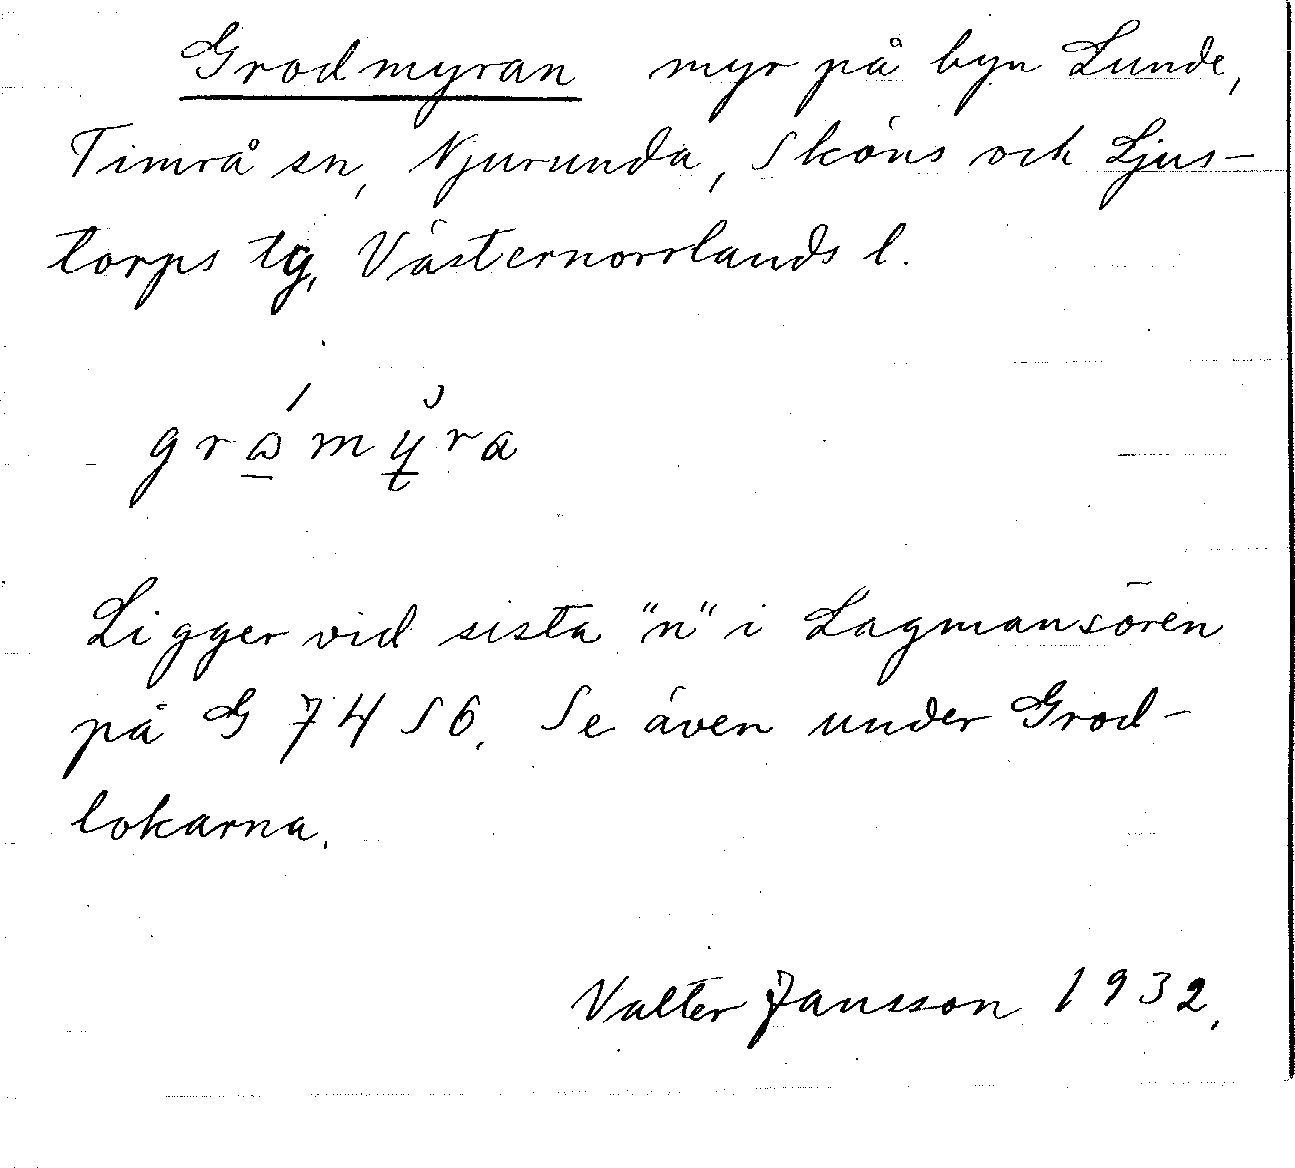 Grodmyran myr på byn Lunde,
Timrå sn, Njurunda, Sköns och Ljus-
torps tg, Västernorrlands l.
gråmyra
Ligger vid sista "n" i Lagmansören
på G 7456. Se även under Grod-
lokarna.
Valter Jansson 1932.